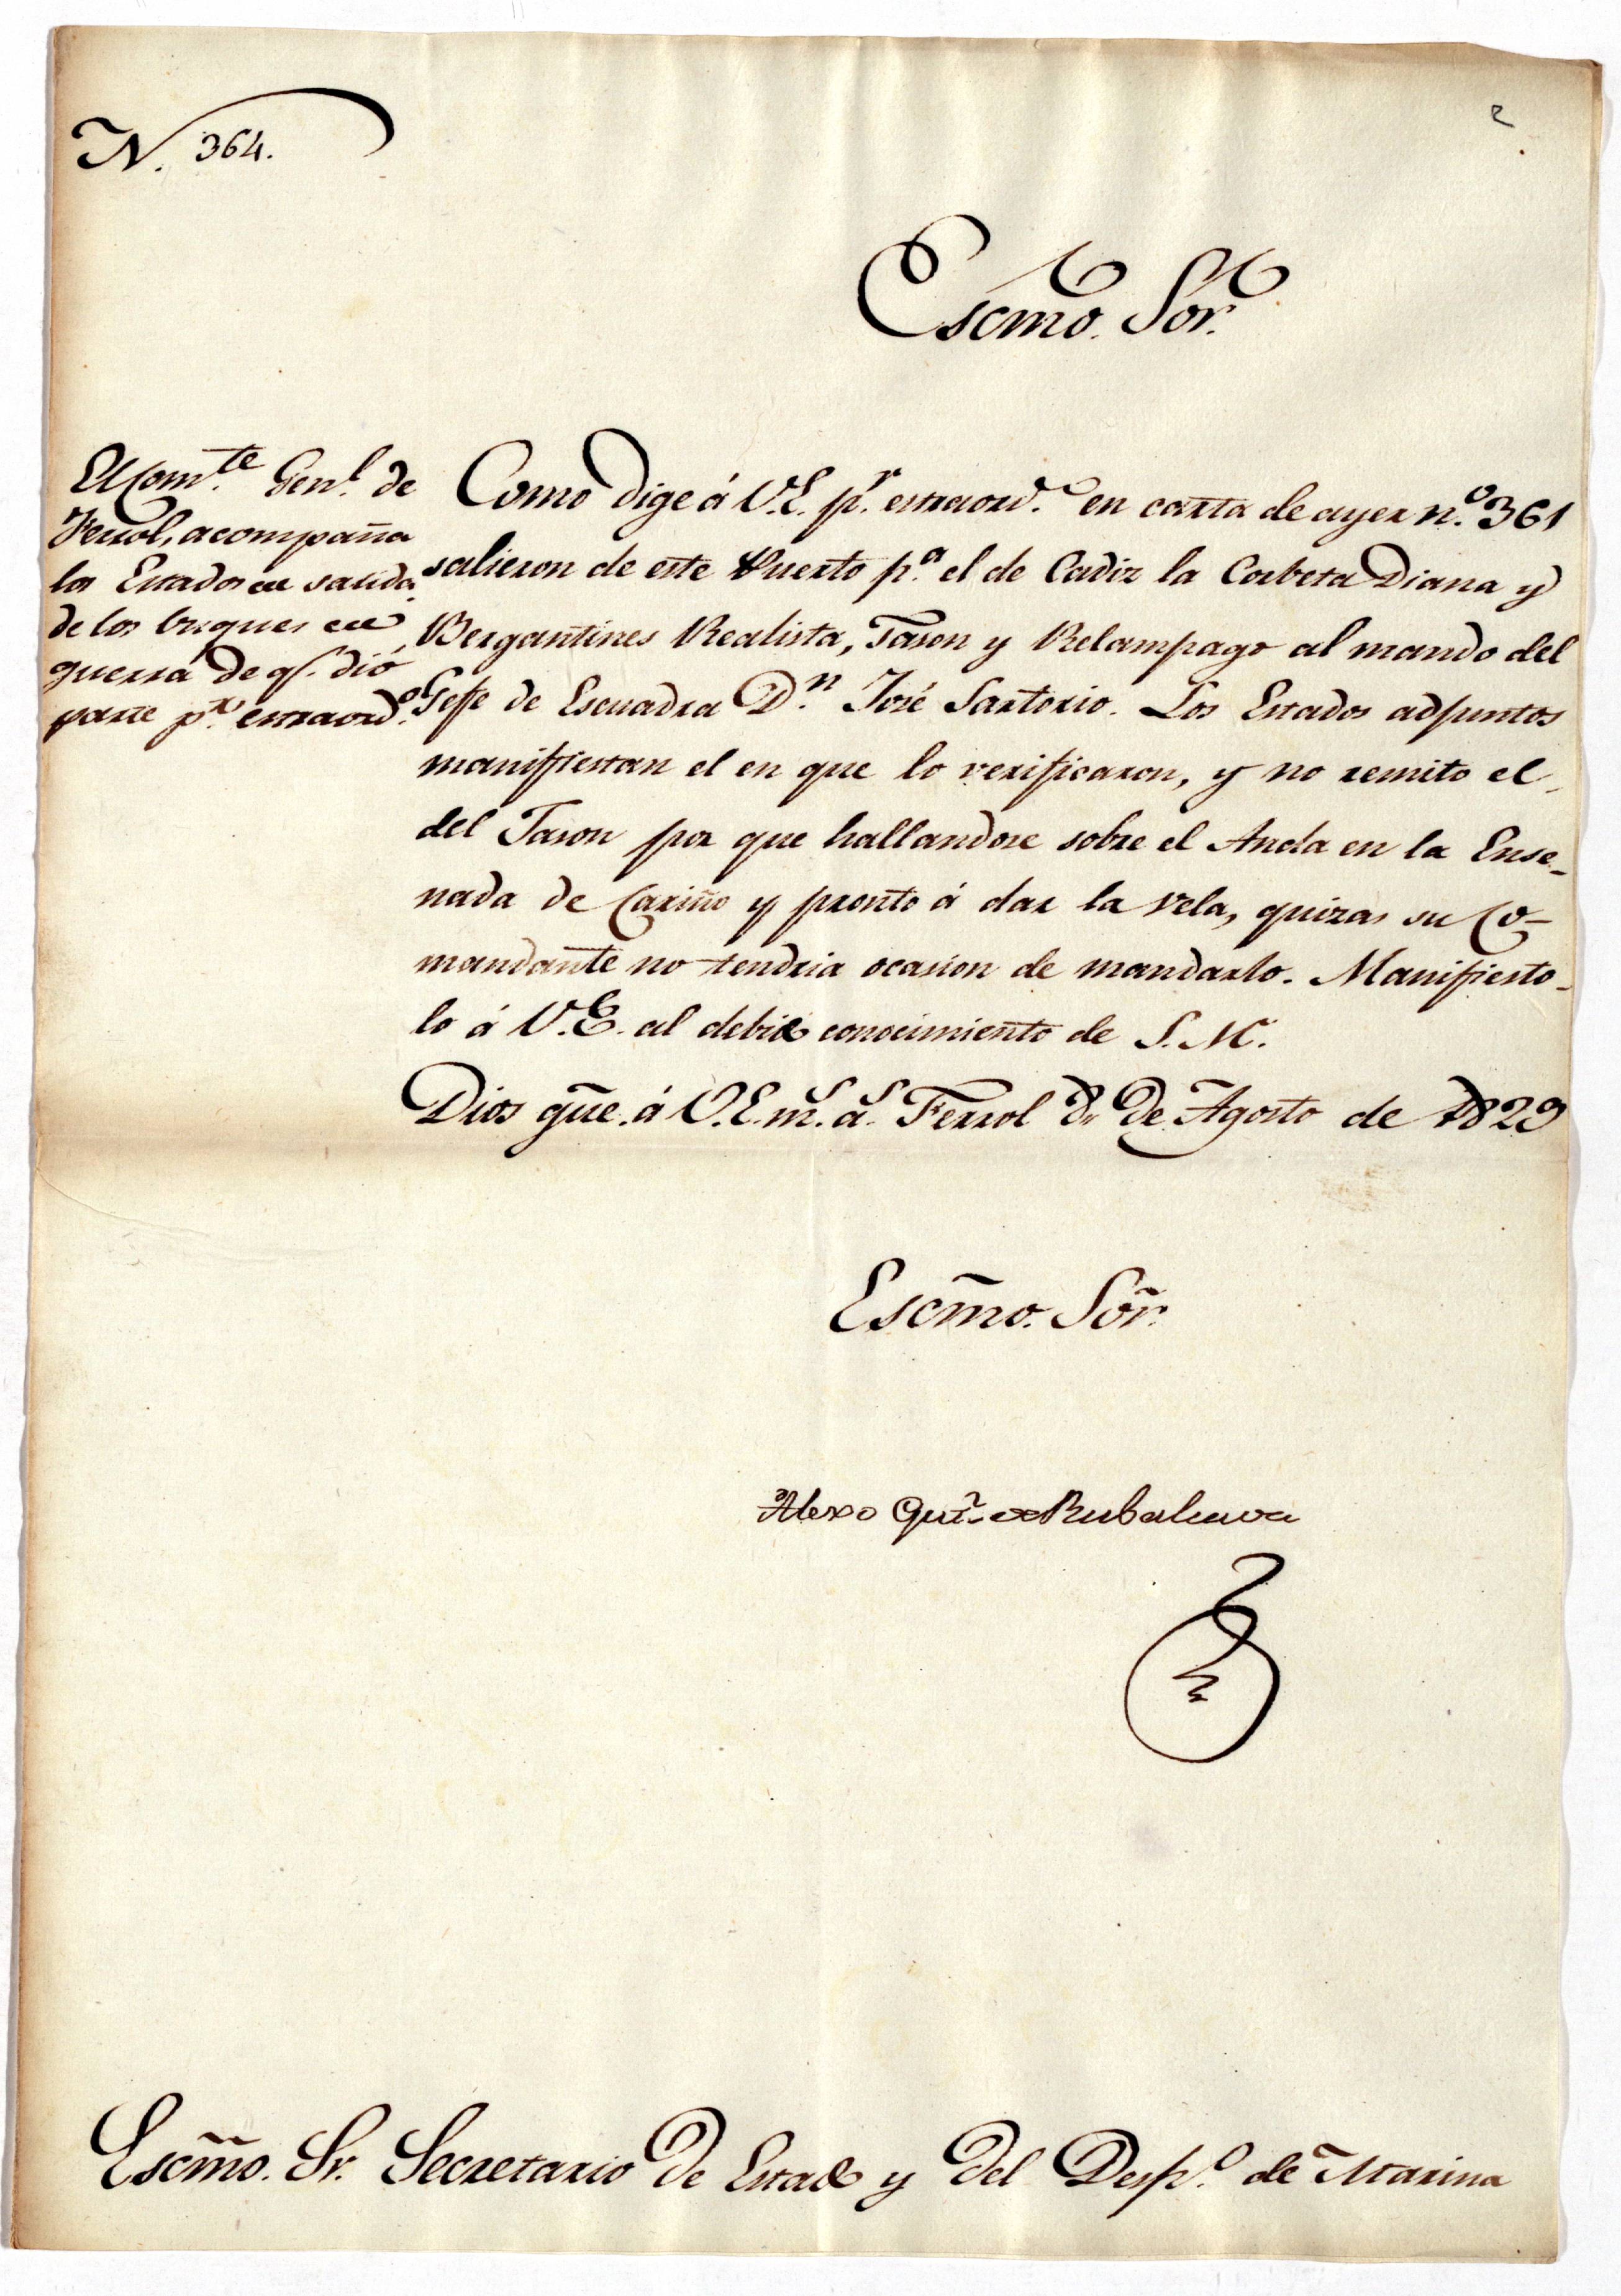 N. 364.
2
Escmo. Sor.
El Com.te Gen.l de
Ferrol, acompaña
los Estados de salida
de los buques de
guerra de q.e dió
parte p.r estraord.o
Como dige á V.E. p.r estraord.o en carta de ayer n.o 361
salieron de este Puerto p.a el de Cadiz la Corbeta Diana y
Bergantines Realista, Jason y Relampago al mando del
Gefe de Escuadra D.n José Sartorio. Los Estados adjuntos
manifiestan el en que lo verificaron, y no remito el
del Jason por que hallandose sobre el Ancla en la Ense-
nada de Cariño y pronto á dar la vela, quizas su Co-
mandante no tendria ocasion de mandarlo. Manifiesto-
lo á V.E. al debido conocimiento de S.M.
Dios gũe. á V.E. m.s a.s Ferrol 8 de Agosto de 1829
Escm̃o. Sõr.
Alexo Gut.z de Rubalcava
Escm̃o. Sr. Secretario de Estado y del Desp.o de Marina